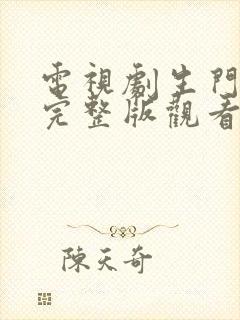 電視劇生門
完整版觀看
陳天奇